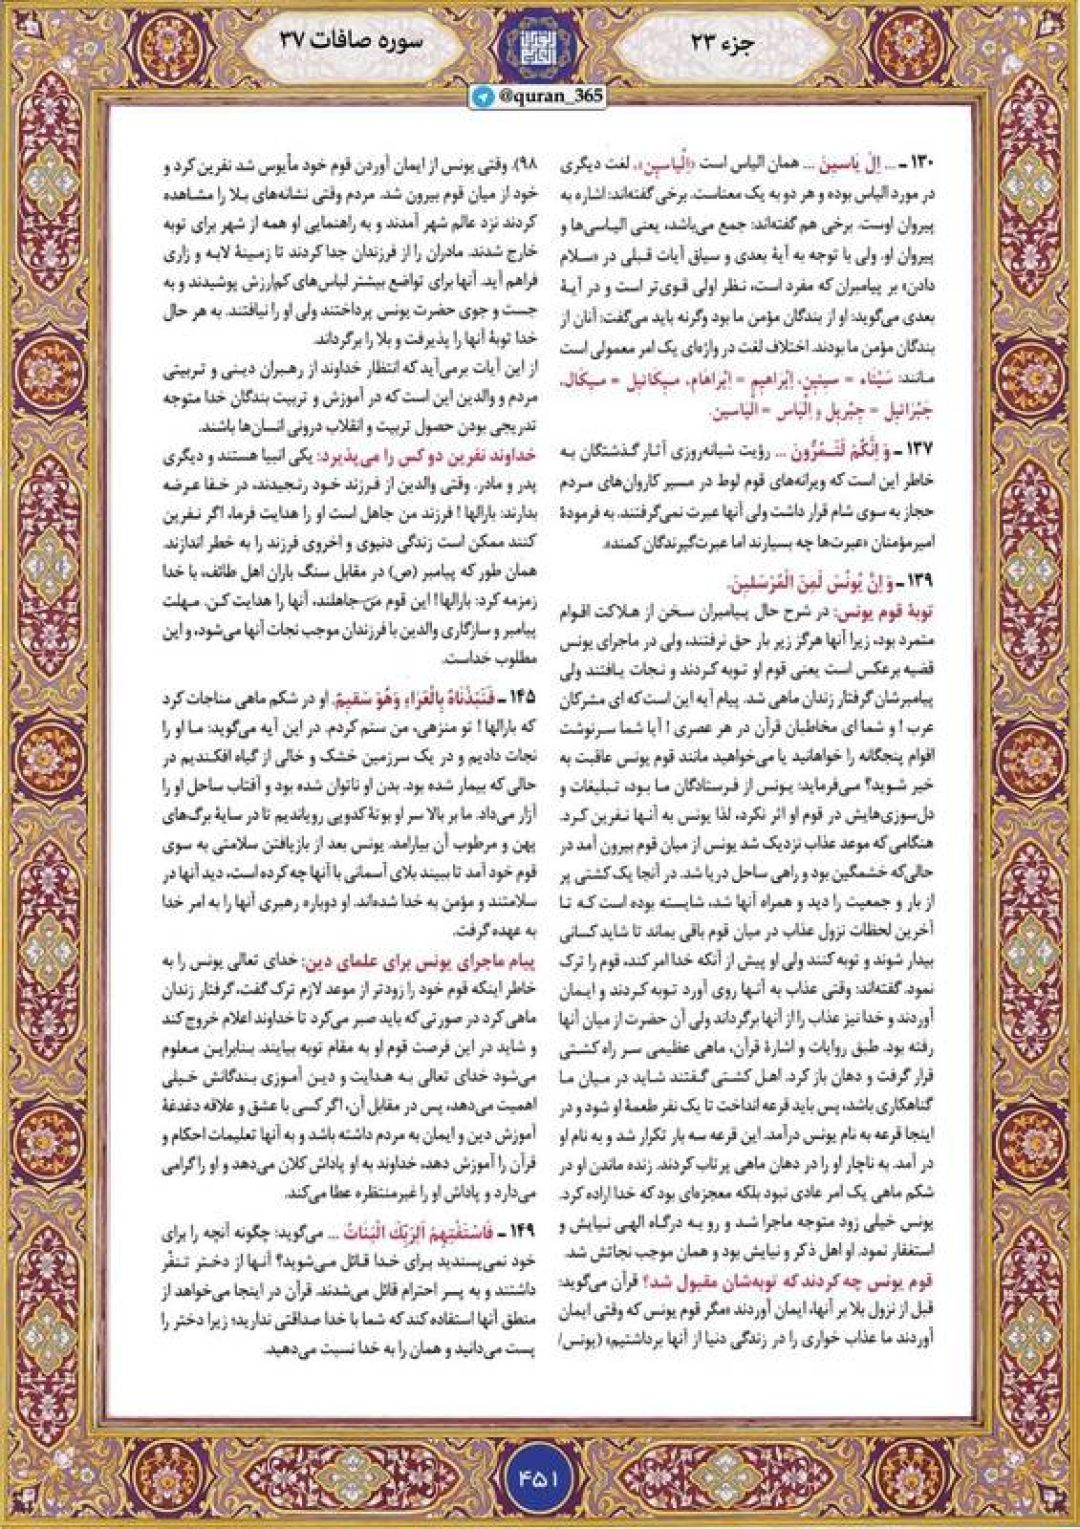 جزء ۲۳
سوره صافات ۳۷
@quran_365
۱۳۰ ـ ... اِلْ یٰاسینَ ... همان الیاس است «اِلْیاسینَ»، لغت دیگری
در مورد الیاس بوده و هر دو به یک معناست. برخی گفته‌اند: اشاره به
پیروان اوست. برخی هم گفته‌اند: جمع می‌باشد، یعنی الیاسی‌ها و
پیروان او. ولی با توجه به آیهٔ بعدی و سیاق آیات قبلی در «سلام
دادن» بر پیامبران که مفرد است، نظر اولی قوی‌تر است و در آیهٔ
بعدی می‌گوید: او از بندگان مؤمن ما بود وگرنه باید می‌گفت: آنان از
بندگان مؤمن ما بودند. اختلاف لغت در واژه‌ای یک امر معمولی است
مانند: سَیْناء = سینین، اِبْراهیم = اِبْراهام، میکائیل = میکال،
جَبْرائیل = جِبْریل و اِلْیاس = اِلْیاسین.
۱۳۷ ـ وَ اِنَّکُمْ لَتَمُرُّونَ ... رؤیت شبانه‌روزی آثار گذشتگان به
خاطر این است که ویرانه‌های قوم لوط در مسیر کاروان‌های مردم
حجاز به سوی شام قرار داشت ولی آنها عبرت نمی‌گرفتند. به فرمودهٔ
امیرمؤمنان «عبرت‌ها چه بسیارند اما عبرت‌گیرندگان کمند».
۱۳۹ ـ وَ اِنَّ یُونُسَ لَمِنَ الْمُرْسَلینَ.
توبهٔ قوم یونس: در شرح حال پیامبران سخن از هلاکت اقوام
متمرد بود، زیرا آنها هرگز زیر بار حق نرفتند، ولی در ماجرای یونس
قضیه برعکس است یعنی قوم او توبه کردند و نجات یافتند ولی
پیامبرشان گرفتار زندان ماهی شد. پیام آیه این است که ای مشرکان
عرب ! و شما ای مخاطبان قرآن در هر عصری ! آیا شما سرنوشت
اقوام پنجگانه را خواهانید یا می‌خواهید مانند قوم یونس عاقبت به
خیر شوید؟ می‌فرماید: یونس از فرستادگان ما بود، تبلیغات و
دل‌سوزی‌هایش در قوم او اثر نکرد، لذا یونس به آنها نفرین کرد.
هنگامی که موعد عذاب نزدیک شد یونس از میان قوم بیرون آمد در
حالی‌که خشمگین بود و راهی ساحل دریا شد. در آنجا یک کشتی پر
از بار و جمعیت را دید و همراه آنها شد، شایسته بوده است که تا
آخرین لحظات نزول عذاب در میان قوم باقی بماند تا شاید کسانی
بیدار شوند و توبه کنند ولی او پیش از آنکه خدا امر کند، قوم را ترک
نمود. گفته‌اند: وقتی عذاب به آنها روی آورد توبه کردند و ایمان
آوردند و خدا نیز عذاب را از آنها برگرداند ولی آن حضرت از میان آنها
رفته بود. طبق روایات و اشارهٔ قرآن، ماهی عظیمی سر راه کشتی
قرار گرفت و دهان باز کرد. اهل کشتی گفتند شاید در میان ما
گناهکاری باشد، پس باید قرعه انداخت تا یک نفر طعمهٔ او شود و در
اینجا قرعه به نام یونس درآمد. این قرعه سه بار تکرار شد و به نام او
در آمد. به ناچار او را در دهان ماهی پرتاب کردند. زنده ماندن او در
شکم ماهی یک امر عادی نبود بلکه معجزه‌ای بود که خدا اراده کرد.
یونس خیلی زود متوجه ماجرا شد و رو به درگاه الهی نیایش و
استغفار نمود. او اهل ذکر و نیایش بود و همان موجب نجاتش شد.
قوم یونس چه کردند که توبه‌شان مقبول شد؟ قرآن می‌گوید:
قبل از نزول بلا بر آنها، ایمان آوردند «مگر قوم یونس که وقتی ایمان
آوردند ما عذاب خواری را در زندگی دنیا از آنها برداشتیم» (یونس/
۹۸). وقتی یونس از ایمان آوردن قوم خود مأیوس شد نفرین کرد و
خود از میان قوم بیرون شد. مردم وقتی نشانه‌های بلا را مشاهده
کردند نزد عالم شهر آمدند و به راهنمایی او همه از شهر برای توبه
خارج شدند. مادران را از فرزندان جدا کردند تا زمینهٔ لابه و زاری
فراهم آید. آنها برای تواضع بیشتر لباس‌های کم‌ارزش پوشیدند و به
جست و جوی حضرت یونس پرداختند ولی او را نیافتند. به هر حال
خدا توبهٔ آنها را پذیرفت و بلا را برگرداند.
از این آیات برمی‌آید که انتظار خداوند از رهبران دینی و تربیتی
مردم و والدین این است که در آموزش و تربیت بندگان خدا متوجه
تدریجی بودن حصول تربیت و انقلاب درونی انسان‌ها باشند.
خداوند نفرین دو کس را می‌پذیرد: یکی انبیا هستند و دیگری
پدر و مادر. وقتی والدین از فرزند خود رنجیدند، در خفا عرضه
بدارند: بارالها ! فرزند من جاهل است او را هدایت فرما، اگر نفرین
کنند ممکن است زندگی دنیوی و اخروی فرزند را به خطر اندازند.
همان طور که پیامبر (ص) در مقابل سنگ باران اهل طائف، با خدا
زمزمه کرد: بارالها! این قوم من جاهلند، آنها را هدایت کن. مهلت
پیامبر و سازگاری والدین با فرزندان موجب نجات آنها می‌شود، و این
مطلوب خداست.
۱۴۵ ـ فَنَبَذْناهُ بِالْعَراءِ وَهُوَ سَقیمٌ. او در شکم ماهی مناجات کرد
که بارالها ! تو منزهی، من ستم کردم. در این آیه می‌گوید: ما او را
نجات دادیم و در یک سرزمین خشک و خالی از گیاه افکندیم در
حالی که بیمار شده بود. بدن او ناتوان شده بود و آفتاب ساحل او را
آزار می‌داد. ما بر بالا سر او بوتهٔ کدویی رویاندیم تا در سایهٔ برگ‌های
پهن و مرطوب آن بیارامد. یونس بعد از بازیافتن سلامتی به سوی
قوم خود آمد تا ببیند بلای آسمانی با آنها چه کرده است، دید آنها در
سلامتند و مؤمن به خدا شده‌اند. او دوباره رهبری آنها را به امر خدا
به عهده گرفت.
پیام ماجرای یونس برای علمای دین: خدای تعالی یونس را به
خاطر اینکه قوم خود را زودتر از موعد لازم ترک گفت، گرفتار زندان
ماهی کرد در صورتی که باید صبر می‌کرد تا خداوند اعلام خروج کند
و شاید در این فرصت قوم او به مقام توبه بیایند. بنابراین معلوم
می‌شود خدای تعالی به هدایت و دین آموزی بندگانش خیلی
اهمیت می‌دهد، پس در مقابل آن، اگر کسی با عشق و علاقه دغدغهٔ
آموزش دین و ایمان به مردم داشته باشد و به آنها تعلیمات احکام و
قرآن را آموزش دهد، خداوند به او پاداش کلان می‌دهد و او را گرامی
می‌دارد و پاداش او را غیرمنتظره عطا می‌کند.
۱۴۹ ـ فَاسْتَفْتِهِمْ اَلِرَبِّکَ الْبَناتُ ... می‌گوید: چگونه آنچه را برای
خود نمی‌پسندید برای خدا قائل می‌شوید؟ آنها از دختر تنفّر
داشتند و به پسر احترام قائل می‌شدند. قرآن در اینجا می‌خواهد از
منطق آنها استفاده کند که شما با خدا صداقتی ندارید؛ زیرا دختر را
پست می‌دانید و همان را به خدا نسبت می‌دهید.
۴۵۱